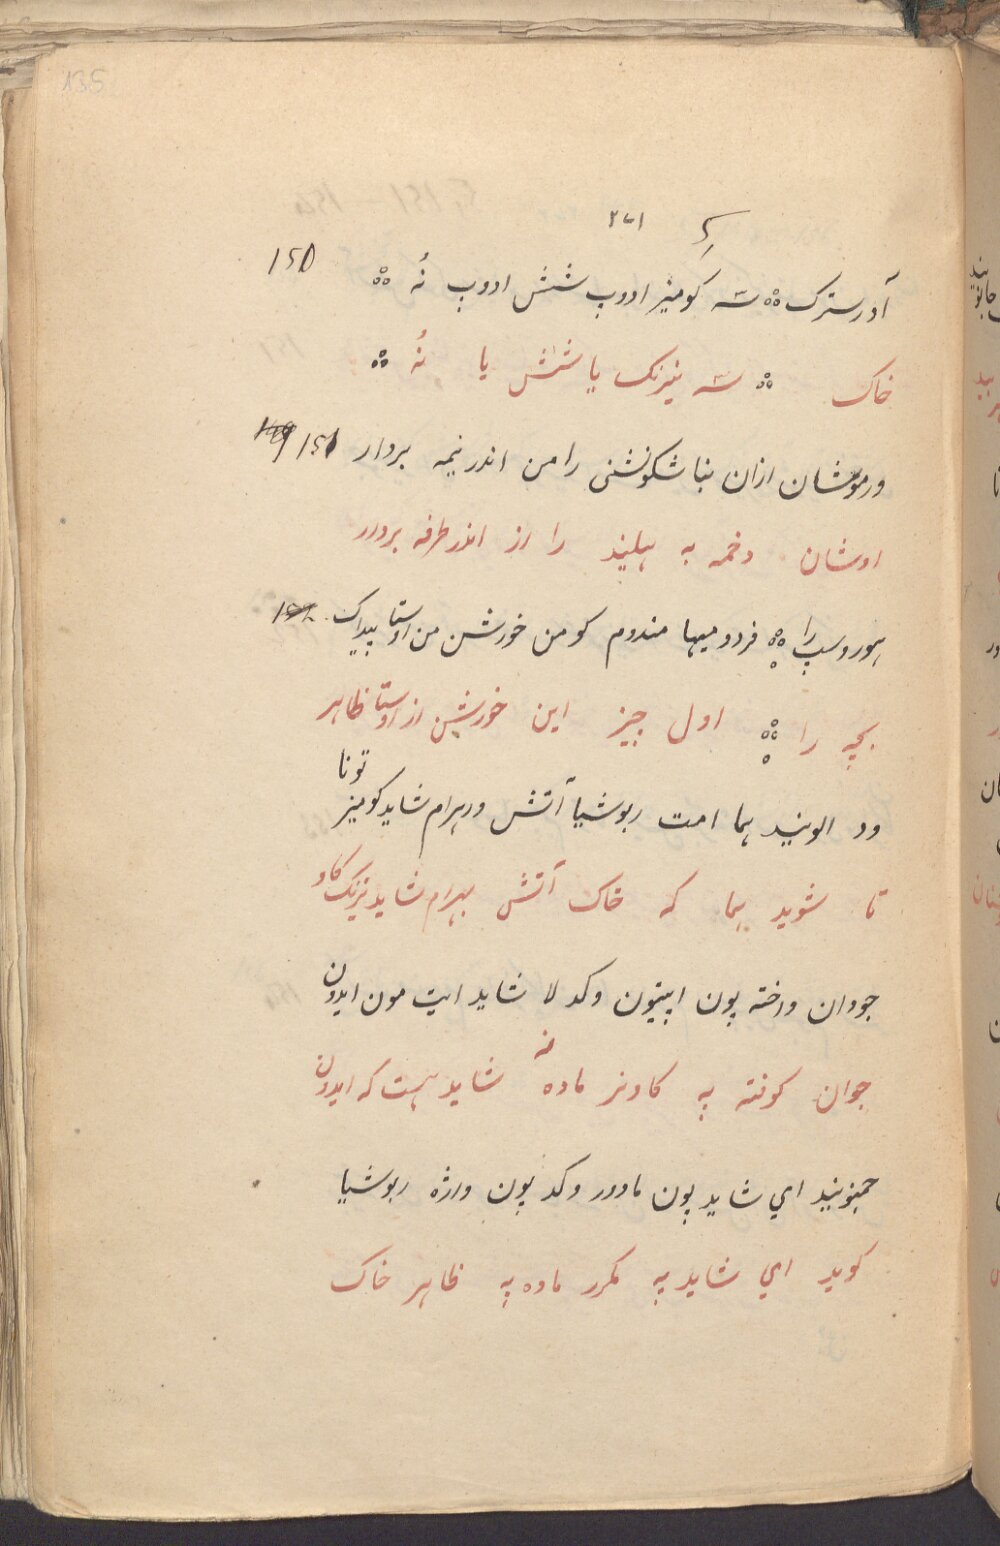 135
۲۷۱
آدرسترک ⁘ سه کومیز ادوپ شش ادوپ نُه ⁘ 150
خاک ⁘ سه نیرنک یا شش یا نُه ⁘
ورموشان ازان بنا شکونشنی رامن اندر نیمه بردار 151
اوشان دخمه به هلیند را از اندر طرفه بردرر
اهوروسپ را ⁘ فردومیها مندوم کومن خورشن من اوستا پیداک
بچه را ⁘ اول چیز این خورشن از اوستا ظاهر
ود الونید هما امت ربوشیا آتش ورهرام شاید کومیز تونا
تا شوید هما که خاک آتش بهرام شاید نیرنک کاو
جودان ورخته پون اپیتون وکد لا شاید ایت مون ایدون
جوان کونته په کاونر ماده نه شاید هست که ایدون
جمنونید ای شاید پون مادور وکد پون ورژه ربوشیا
کوید ای شاید په مکرر ماده په ظاهر خاک